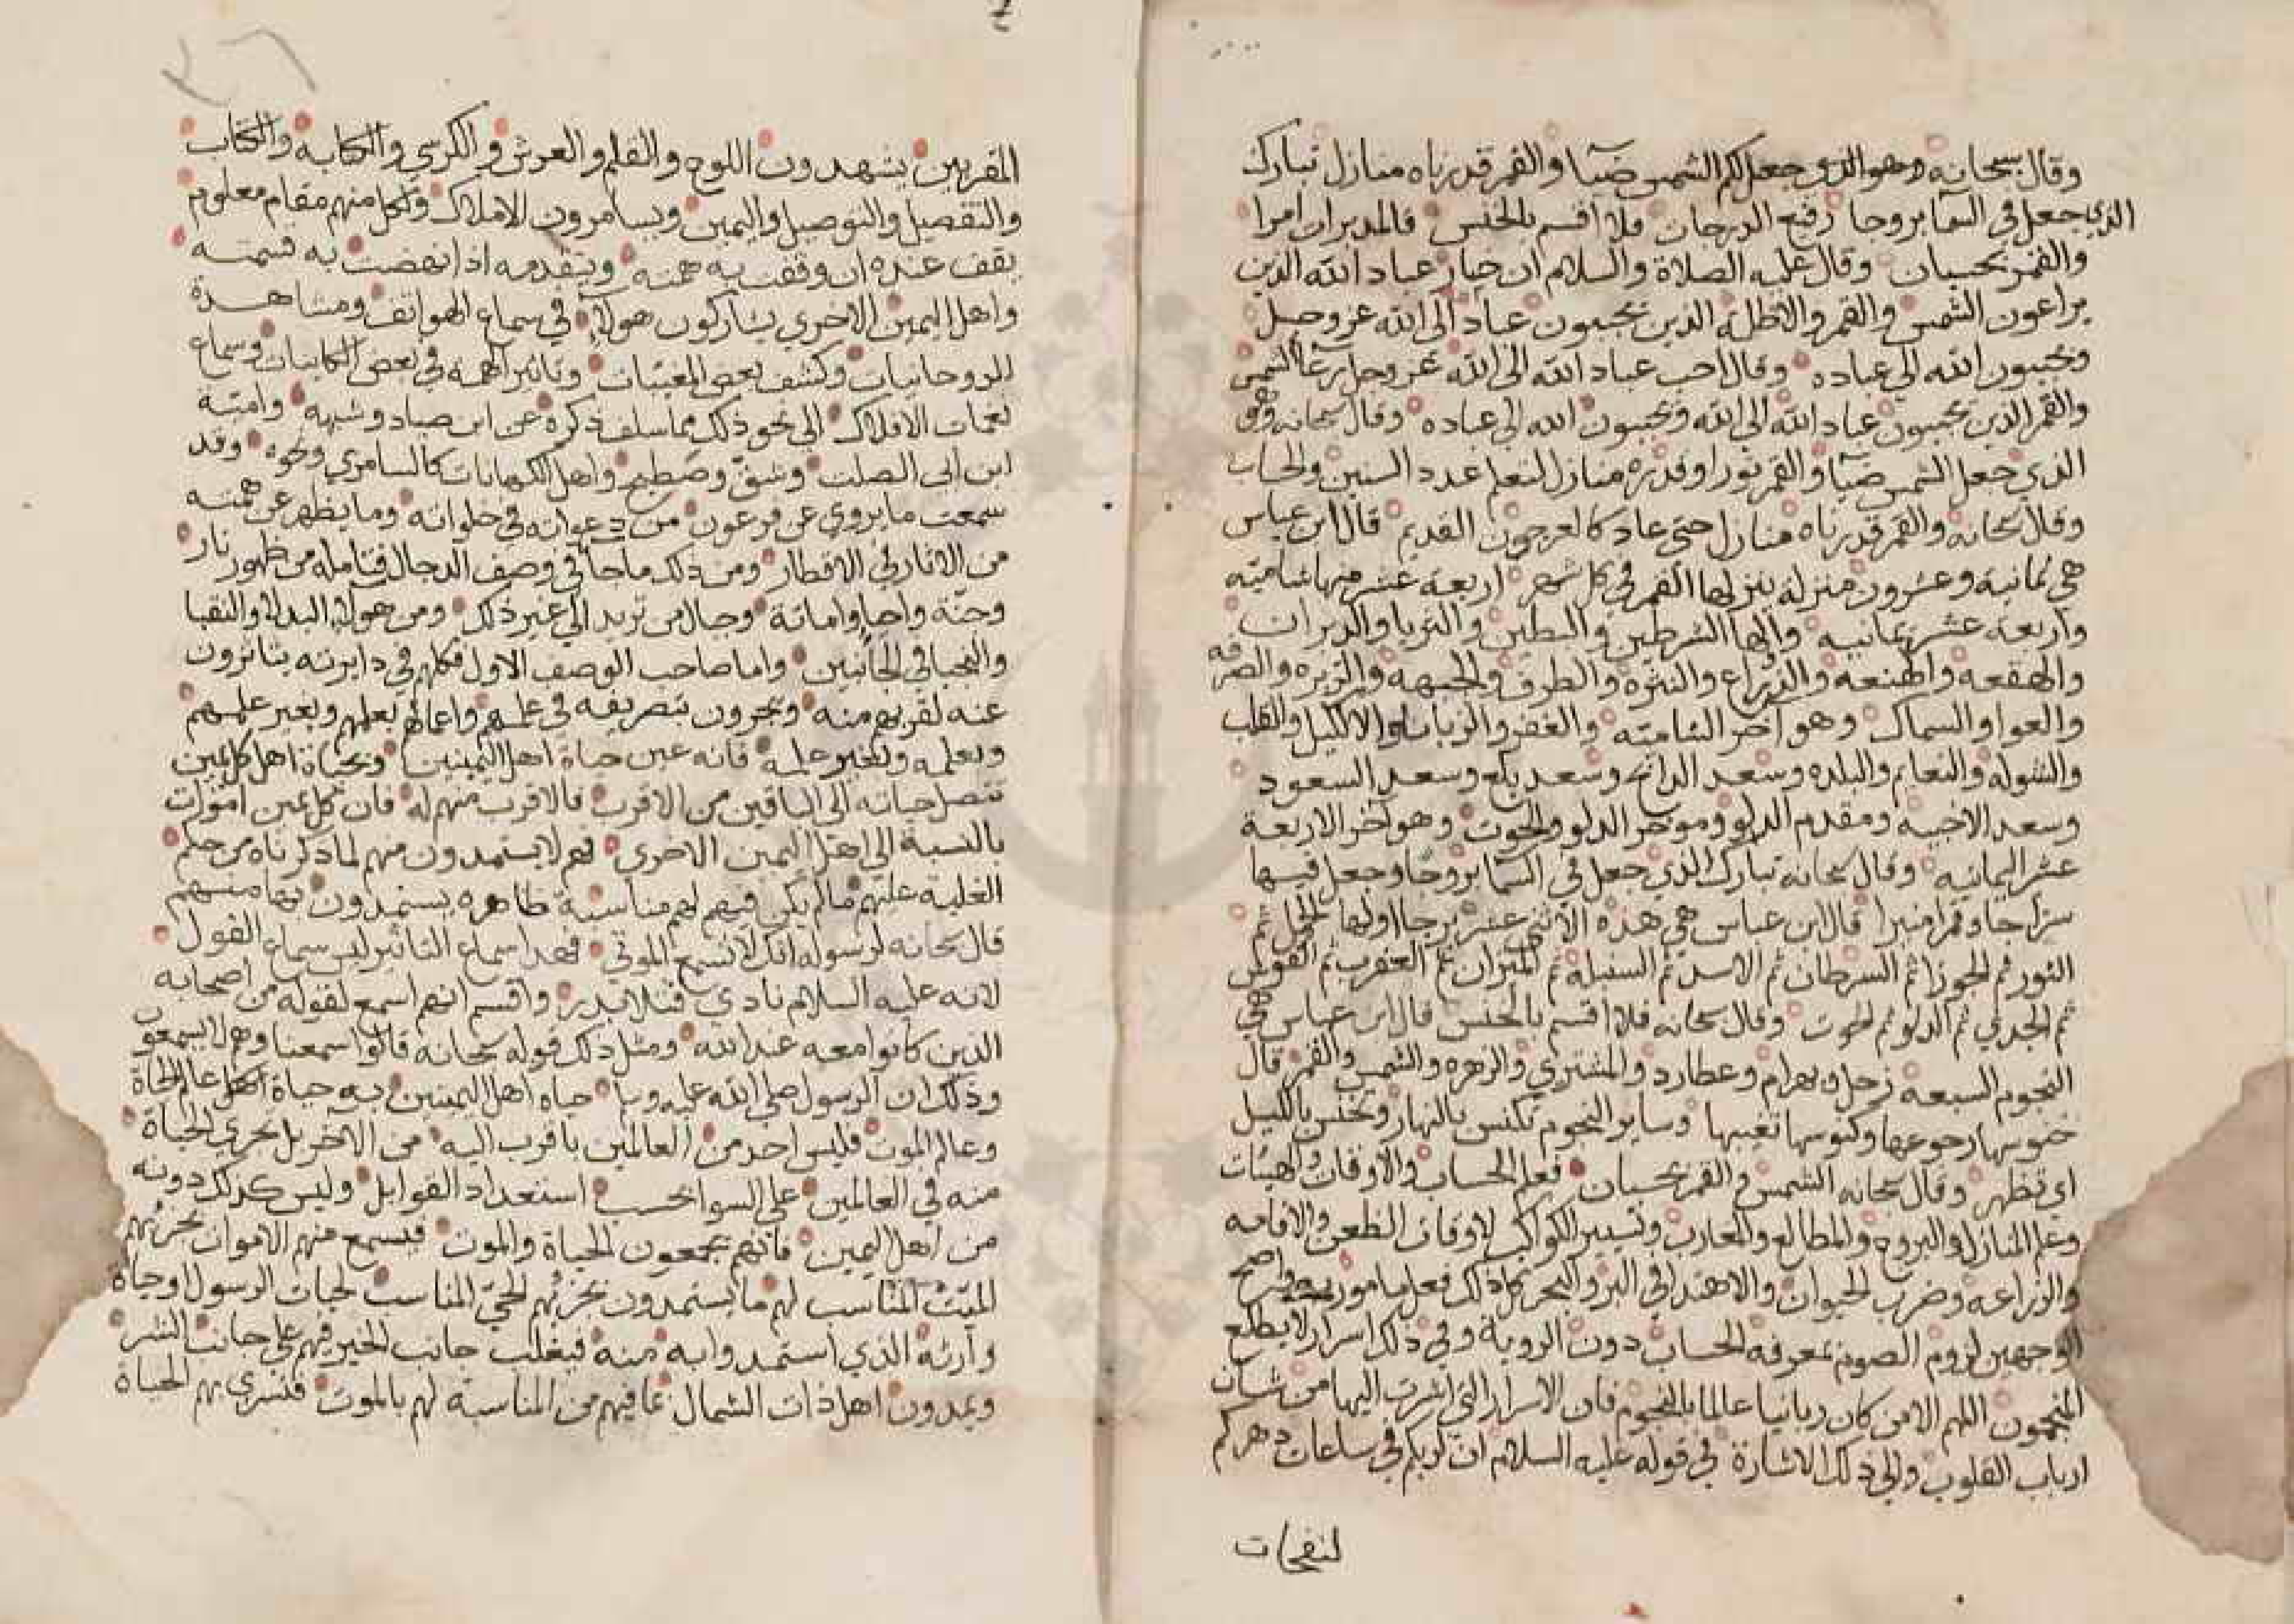 وقال سبحانه وهو الذي جعل لكم الشمس ضيآ والقمر قدرناه منازل تبارك
الذي جعل في السما بروجا رفيع الدرجات فلا اقسم بالخنس فالمدبرات امرا
والقمر بحسبان وقال عليه الصلاة والسلام ان خيار عباد الله الذين
يراعون الشمس والقمر والاظلة الذين يحببون عباد الله الى الله عز وجل
ويحببون الله الى عباده وقال احب عباد الله الى الله عز وجل رعآ الشمس
والقمر الذين يحببون عباد الله الى الله ويحببون الله الى عباده وقال سبحانه وهو
الذي جعل الشمس ضيآ والقمر نورا وقدره منازل لتعلموا عدد السنين والحساب
وقال سبحانه والقمر قدرناه منازل حتى عاد كالعرجون القديم قال ابن عباس
هي ثمانية وعشرون منزلة ينزلها القمر في كل شهر اربعة عشر منها شامية
واربعة عشر يمانيه واولها الشرطين والبطين والثريا والدبران
والهقعه والهنعه والذراع والنثره والطرف والجبهه والزبره والصرفه
والعوا والسماك وهو اخر الشاميته والغفر والزبانا والاكليل والقلب
والشوله والنعايم والبلده وسعد الذابح وسعد بلع وسعد السعود
وسعد الاخبيه ومقدم الدلو وموخر الدلو والحوت وهو اخر الاربعة
عشر اليمانيه وقال سبحانه تبارك الذي جعل في السما بروجا وجعل فيها
سراجا وقمرا منيرا قال ابن عباس هي هذه الاثني عشر برجا اولها الحمل ثم
الثور ثم الجوزا ثم السرطان ثم الاسد ثم السنبلة ثم الميزان ثم العقرب ثم القوس
ثم الجدي ثم الدلو ثم الحوت وقال سبحانه فلا اقسم بالخنس قال ابن عباس هي
النجوم السبعه زحل وبهرام وعطارد والمشتري والزهره والشمس والقمر قال
خنوسها رجوعها وكنوسها تغيبها وساير النجوم تكنس بالنهار وتخنس بالليل
اي تظهر وقال سبحانه الشمس والقمر بحسبان فعلم الحساب والاوقات والهيئات
وعلم المنازل والبروج والمطالع والمغارب وتسيير الكواكب لاوقات الظعن والاقامه
والزراعه وضرب الحيوان والاهتدا في البر والبحر كل ذلك فعلم مامور به واضح
الوجهين لزوم الصوم بمعرفه الحساب دون الروية وفي ذلك اسرار لا يطلع
المنجمون اللهم الا من كان ربانيا عالما بالنجوم فان الاسرار التي اشرت اليها من شان
ارباب القلوب والى ذلك الاشارة في قوله عليه السلام ان لربكم في ساعات دهركم
لنفحات
المقربين يشهدون اللوح والقلم والعرش والكرسي والكتابه والكتاب
والتفصيل والتوصيل واليمين ويسامرون الاملاك ولكل منهم مقام معلوم
يقف عنده ان وقفت به همته ويتقدمه اذا نهضت به قسمته
واهل اليمين الاخرى يشاركون هولآ في سماع الهواتف ومشاهدة
الروحانيات وكشف بعض المغيبات وتاثير الهمه في بعض الكاينات وسماع
نغمات الافلاك الى نحو ذلك مما سلف ذكره عن ابن صياد وشبهه وامية
ابن ابي الصلت وشق وصطيح واهل الكهانات كالسامري ونحوه وقد
سمعت ما يروي عن فرعون من دعواته في خلواته وما يظهر عن همته
من الاثار في الاقطار ومن ذلك ما جآ في وصف الدجال فتامله من ظهور نار
وجنة واحيا واماتة وجبال من ثريد الى غير ذلك ومن هولآ البدلا والنقبا
والنجبا في الجانبين واما صاحب الوصف الاول فكلهم في دايرته يتاثرون
عنه لقربهم منه ويجرون بتصريفه في علمهم واعمالهم بعلمهم وبغير علمهم
وبعلمه وبغير علمه فانه عين حياة اهل اليمينين وبحياة اهل كل يمين
تتصل حياته الى الباقين من الاقرب فالاقرب منهم له فان كل يمين اموات
بالنسبة الى اهل اليمين الاخرى فهم لا يستمدون منهم لما ذكرناه من حكم
الغلبة عليهم فما لم يكن فيهم لهم مناسبة ظاهره يستمدون بها منهم
قال سبحانه لرسوله انك لا تسمع الموتى فهذا سماع التاثير ليس سماع القول
لانه عليه السلام نادى قتلا بدر واقسم انهم اسمع لقوله من اصحابه
الذين كانوا معه عند الله ومثل ذلك قوله سبحانه قالوا سمعنا وهم لا يسمعون
وذلك ان الرسول صلى الله عليه وبا حياه اهل اليمينين به حياة اهل عالم الحياة
وعالم الموت فليس احد من العالمين باقرب اليه من الاخر بل يجري الحياة
منه في العالمين على السوا بحسب استعداد القوابل وليس كذلك دونه
من اهل اليمين فانهم يجمعون الحياة والموت فيسمع منهم الاموات بجزئهم
الميت المناسب لهم ما يستمدون بجزئهم الحي المناسب لحيات الرسول او حياة
وارثه الذي استمدوا به منه فيغلب جانب الخير فيهم على جانب الشر
ويمدون اهل ذات الشمال بما فيهم من المناسبة لهم بالموت فتسري بهم الحياة